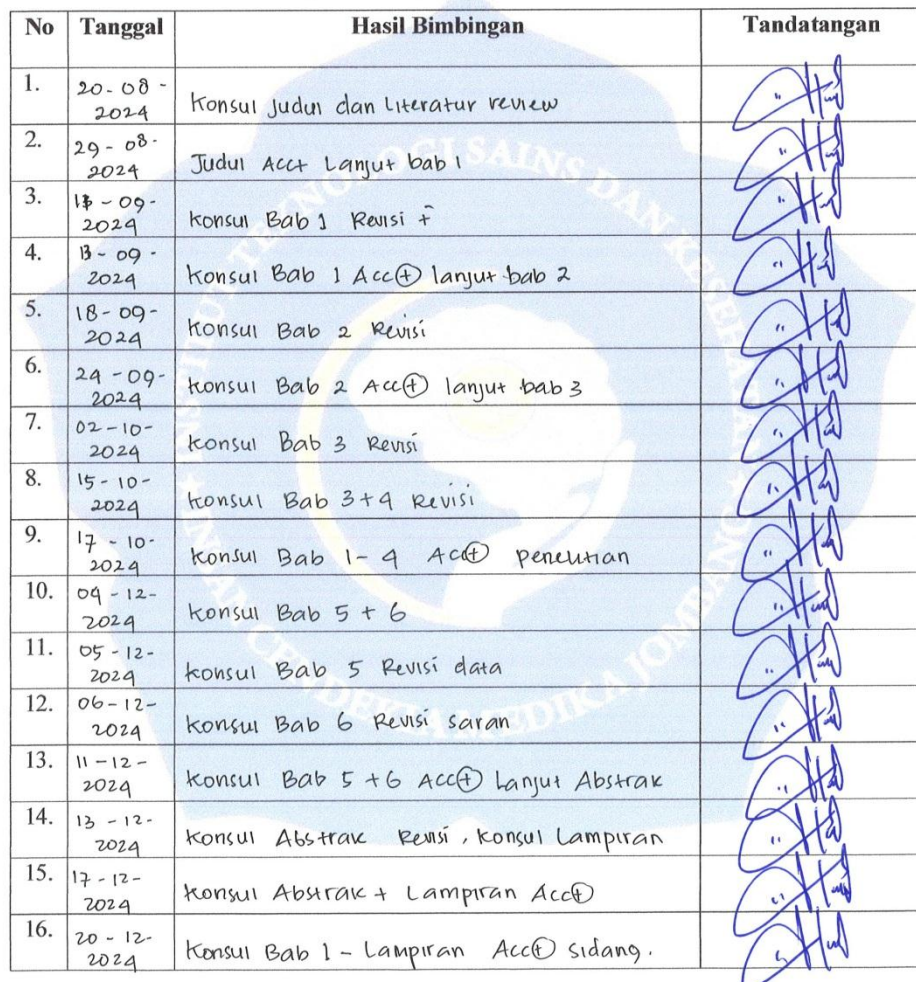 No Tanggal Hasil Bimbingan Tandatangan
1. 20-08-2024 Konsul Judul dan Literatur review
2. 29-08-2024 Judul Acc+ Lanjut bab 1
3. -09-2024 Konsul Bab 1 Revisi +
4. 13-09-2024 Konsul Bab 1 Acc⊕ lanjut bab 2
5. 18-09-2024 Konsul Bab 2 Revisi
6. 24-09-2024 Konsul Bab 2 Acc⊕ lanjut bab 3
7. 02-10-2024 Konsul Bab 3 Revisi
8. 15-10-2024 Konsul Bab 3+4 Revisi
9. 17-10-2024 Konsul Bab 1-4 Acc⊕ penelitian
10. 04-12-2024 Konsul Bab 5 + 6
11. 05-12-2024 Konsul Bab 5 Revisi data
12. 06-12-2024 Konsul Bab 6 Revisi saran
13. 11-12-2024 Konsul Bab 5 +6 Acc⊕ Lanjut Abstrak
14. 13-12-2024 Konsul Abstrak Revisi, Konsul Lampiran
15. 17-12-2024 Konsul Abstrak + Lampiran Acc⊕
16. 20-12-2024 Konsul Bab 1 - Lampiran Acc⊕ sidang.
INSTITUT TEKNOLOGI SAINS DAN KESEHATAN
INSAN CENDEKIA MEDIKA JOMBANG